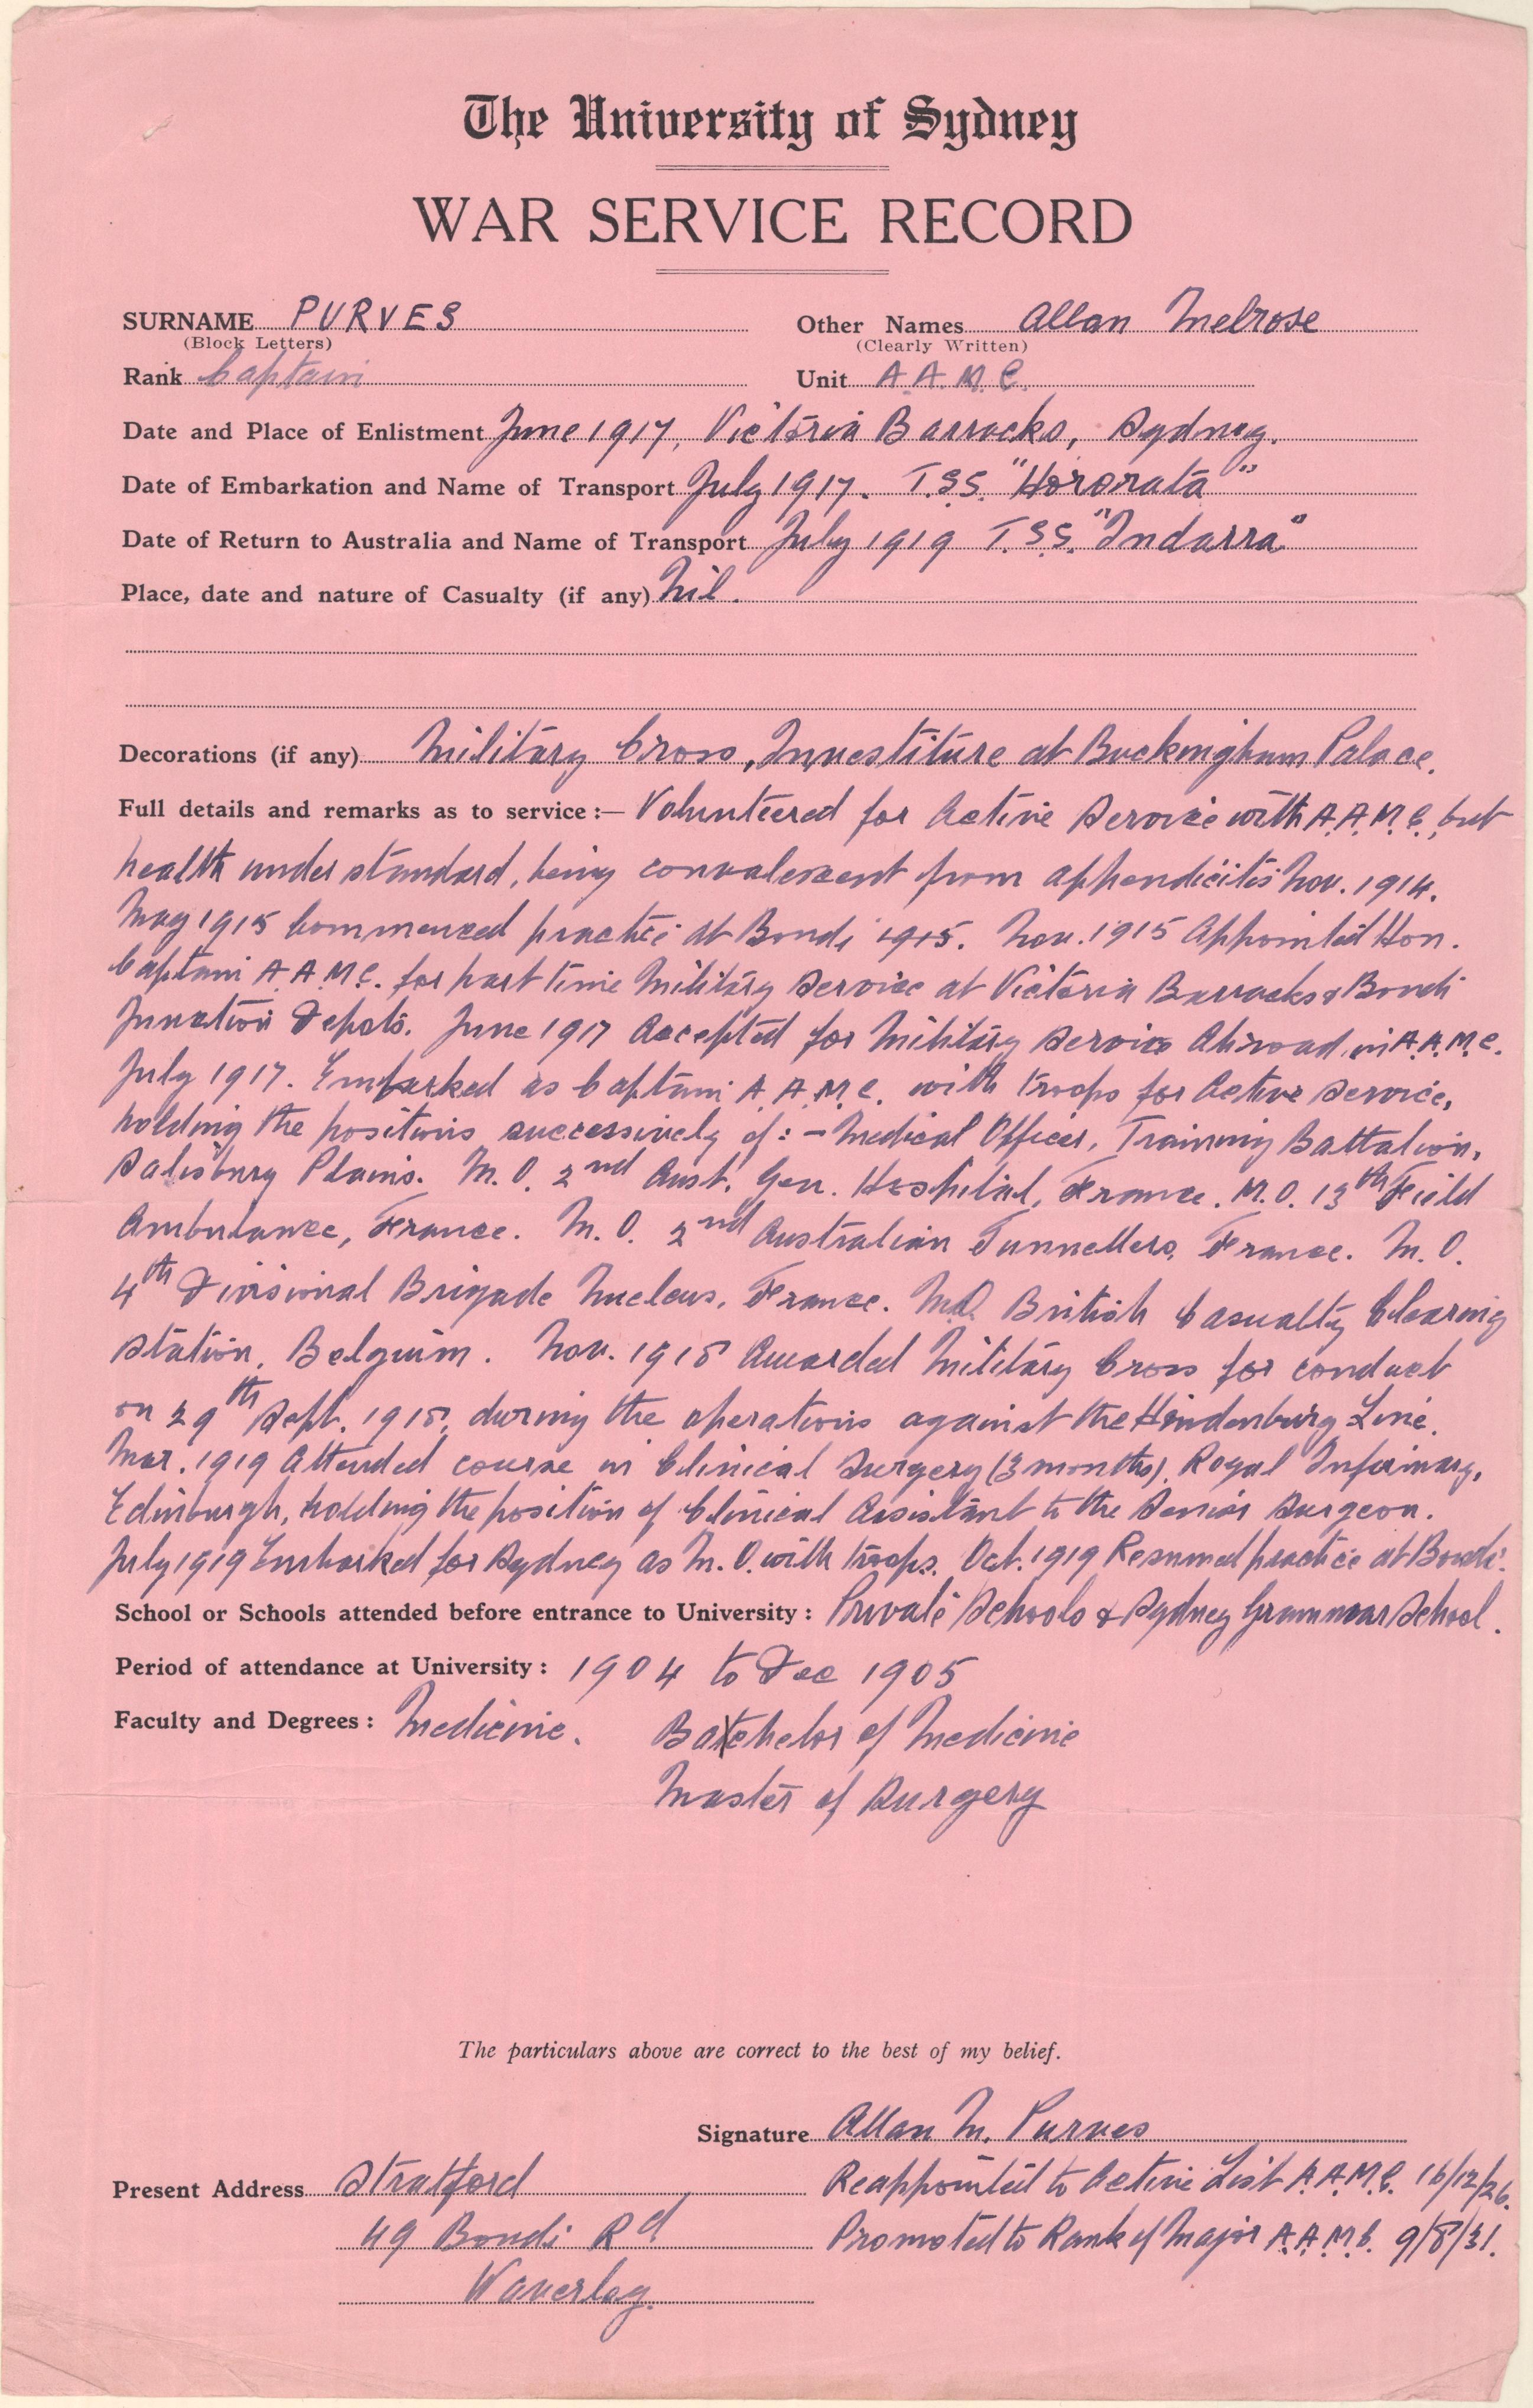 The University of Sydney
WAR SERVICE RECORD
SURNAME PURVES Other Names Allan Melrose
(Block Letters) (Clearly Written)
Rank Captain Unit A.A.M.C.
Date and Place of Enlistment June 1917, Victoria Barracks, Sydney.
Date of Embarkation and Name of Transport July 1917. T.S.S. "Hororata"
Date of Return to Australia and Name of Transport July 1919 T.S.S. "Indarra"
Place, date and nature of Casualty (if any) Nil.
Decorations (if any) Military Cross, Investiture at Buckingham Palace.
Full details and remarks as to service :— Volunteered for Active Service with A.A.M.C. but
health under standard, being convalescent from appendicitis Nov. 1914.
May 1915 Commenced practice at Bondi 1915. Nov. 1915 Appointed Hon.
Captain A.A.M.C. for part time Military Service at Victoria Barracks & Bondi
Junction Depots. June 1917 Accepted for Military Service Abroad in A.A.M.C.
July 1917. Embarked as Captain A.A.M.C. with troops for Active Service,
holding the positions successively of :- Medical Officer, Training Battalion,
Salisbury Plains. M.O. 2nd Aust. Gen. Hospital, France. M.O. 13th Field
Ambulance, France. M.O. 2nd Australian Tunnellers, France. M.O.
4th Divisional Brigade Nucleus, France. M.O. British Casualty Clearing
Station, Belguim. Nov. 1918 Awarded Military Cross for conduct
on 29th Sept. 1918, during the operations against the Hindenburg Line.
Mar. 1919 Attended course in Clinical Surgery (3 months), Royal Infirmary,
Edinburgh, holding the position of Clinical Assistant to the Senior Surgeon.
July 1919 Embarked for Sydney as M.O. with troops. Oct. 1919 Resumed practice at Bondi.
School or Schools attended before entrance to University : Private Schools & Sydney Grammar School.
Period of attendance at University : 1904 to Dec 1905
Faculty and Degrees : Medicine. Batchelor of Medicine
Master of Surgery
The particulars above are correct to the best of my belief.
Signature Allan M. Purves
Present Address Stratford Reappointed to Active List A.A.M.C. 16/12/26.
49 Bondi Rd Promoted to Rank of Major A.A.M.C. 9/8/31.
Waverley.